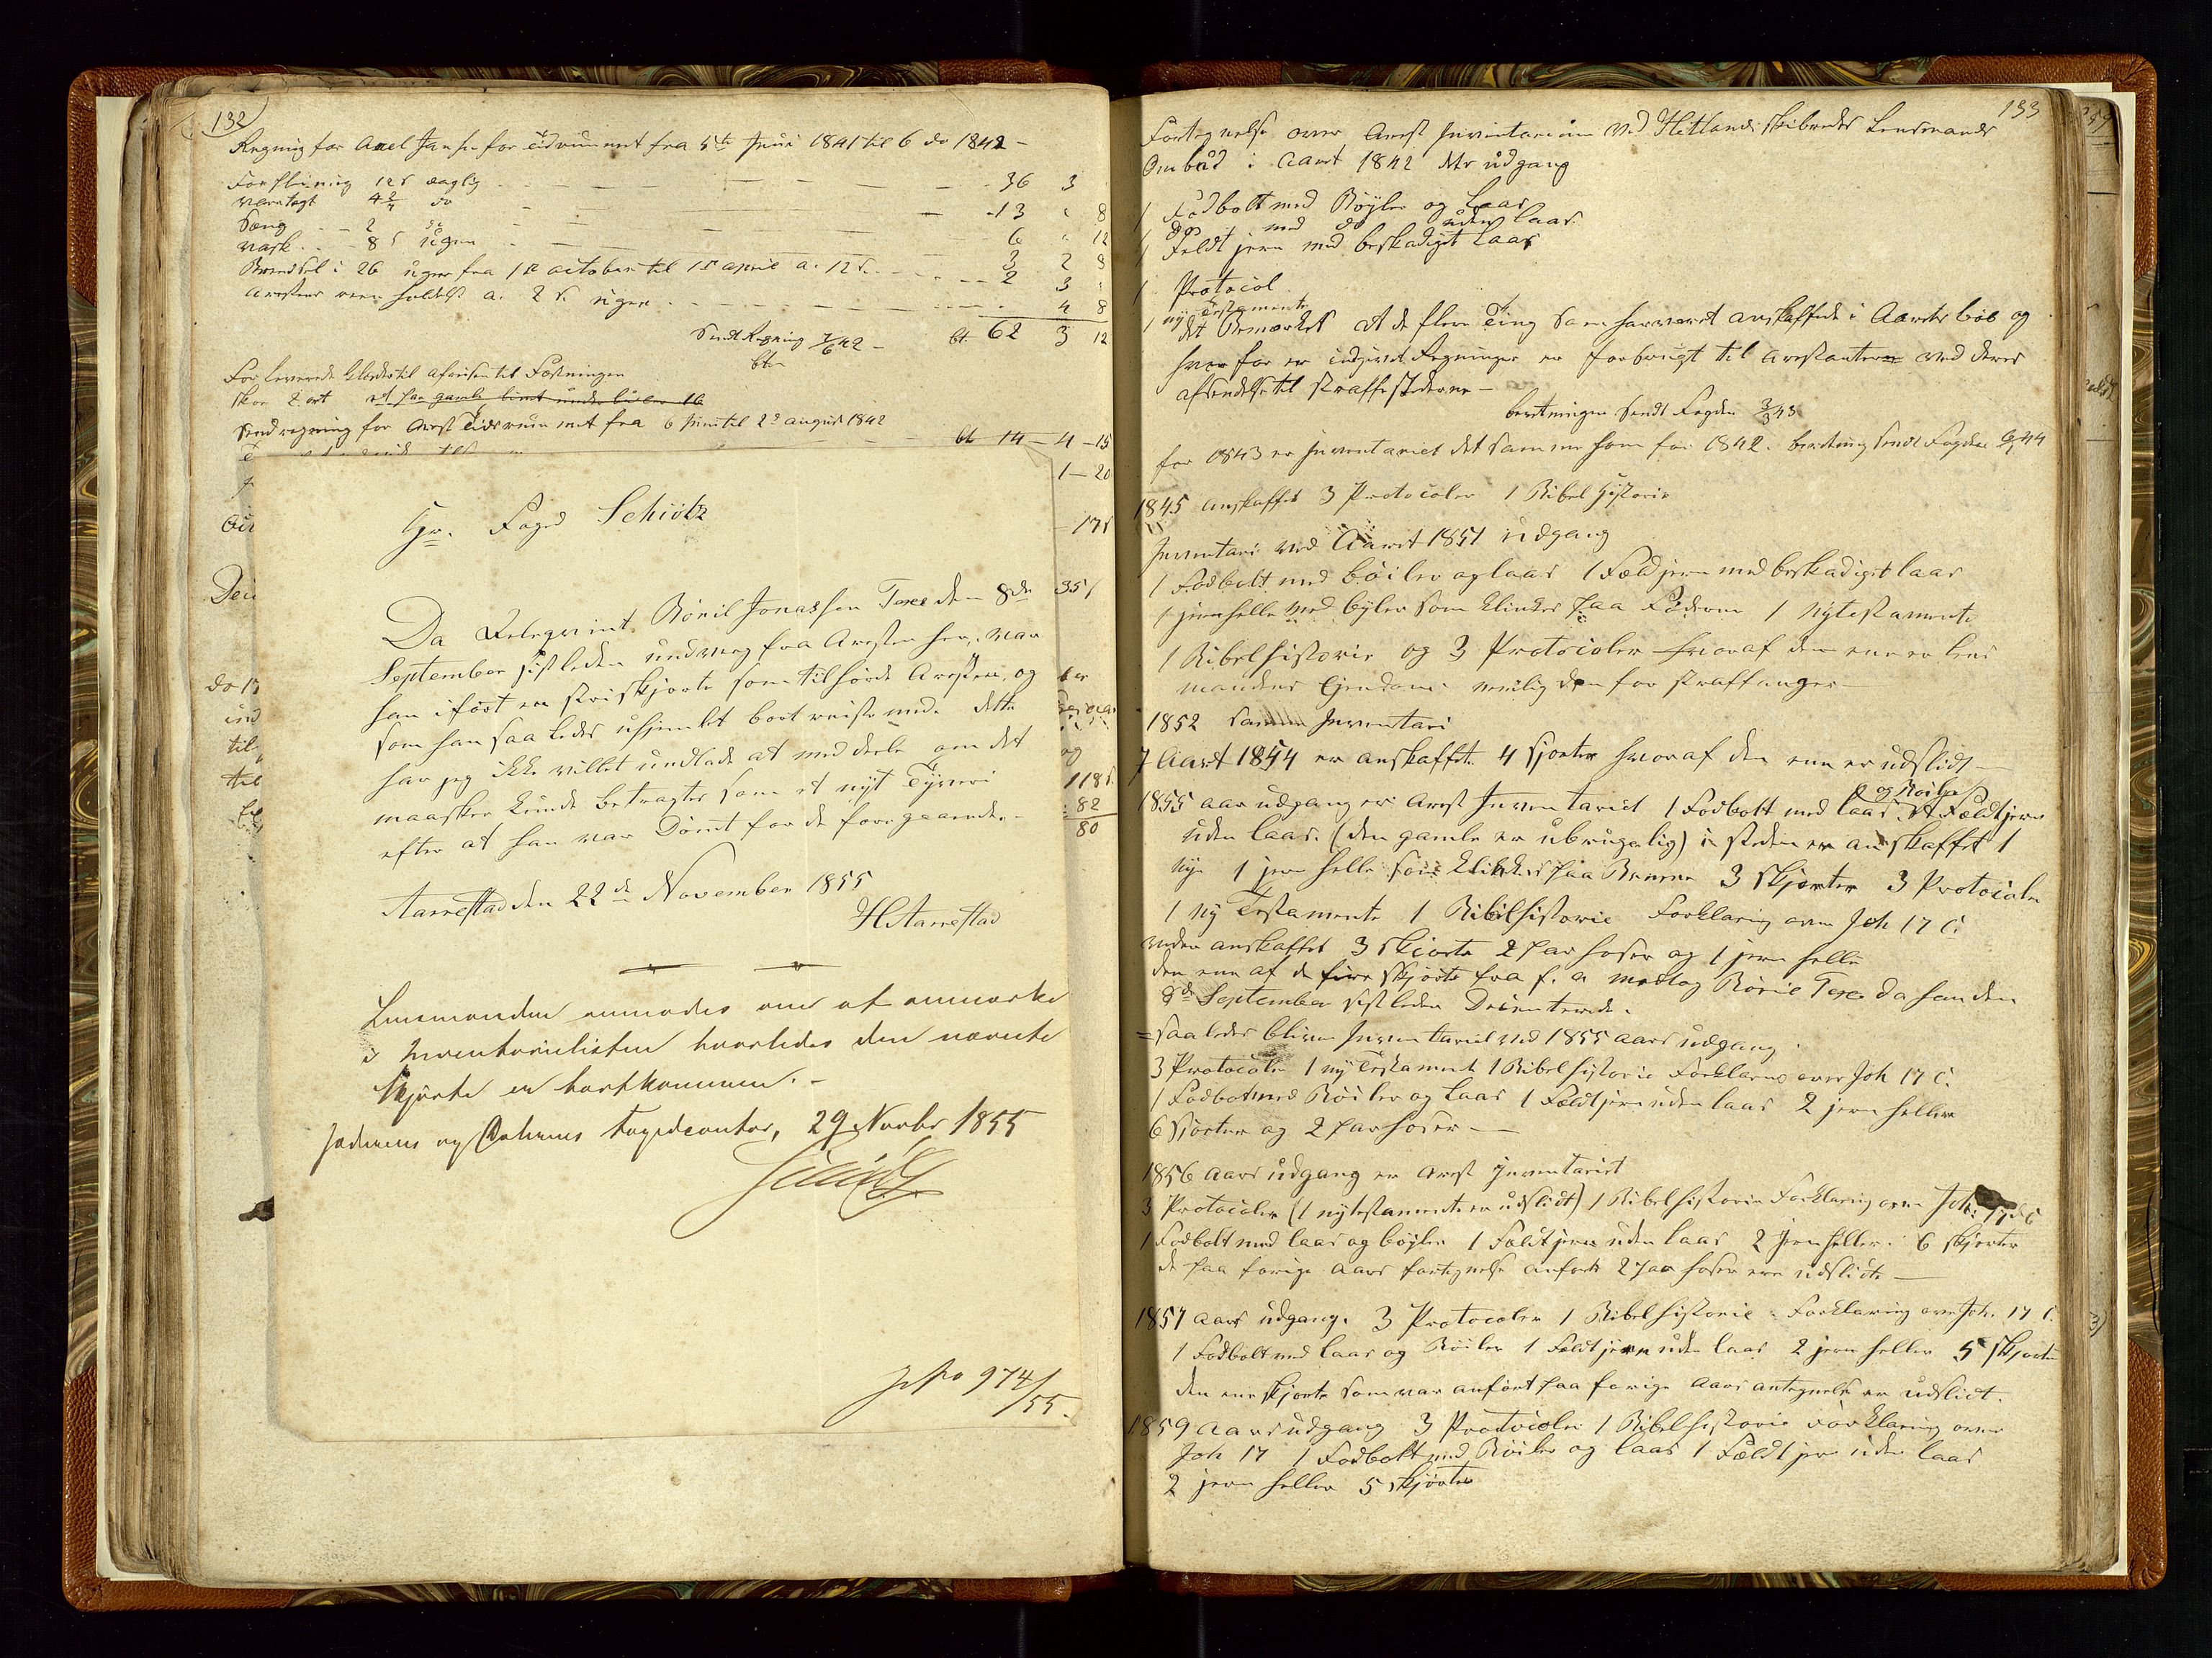 132
Regning for Axel Jansen for Tidrummet fra 5te Juni 1841 til 6 do 1842 -
Forpleining 12 s daglig 36 3
værelagt 4 2/4 do 13 " 8
Seng 2 do 6 " 12
vask 8 s ugen 3 2 8
Brendsel i 26 uger fra 1ste october til 1ste april a. 12 s. 2 3
Arestens reen holdelse a. 2 s. ugen 4 8
Sendt Regning 7/6 42 - bt. 62 3 12
For leverede Klæder til afreisen til Festningen
skoe 2 ort et par gamle
Send regning for Arest Tidsrummet fra 6 Juni til 23 august 1842
bt 14 - 4 - 15
1 - 20
Hr. Foged Schiötz
Da Delegvent Böriel Jonassen Texe den 8de
September sistleden undveg fra Aresten her, var
han iført en striskjorte som tilhørde Aresten, og
som han saaledes uhjemlet bort reiste med. dette
har jeg ikke villet undlade at meddeele om det
maaskee kunde betragtes som et nyt Tyveri
efter at han var Dömt for de foregaaende. -
Aarrestad den 22de November 1855
H Aarrestad
Lensmanden anmodes om at anmærke
i Inventarielisten hvorledes den nævnte
Skjorte er bortkommen. -
Jæderens og Dalernes Fogedcontor, 29 Novbr 1855
Schiötz
JNo 974/55.
118 s.
82
80
133
Fortegnelse over Arest Inventarium ved Hetlands skibredes Lensmands
Ombud i Aaret 1842 dets udgang
1 Fodbolt med Bøyler og Laas
1 do med do uden laas
1 Feldtjern med beskadiget Laas
1 Protocol
1 ny Testamente
det Bemærkes at de flere Ting som har været anskaffede i Aarets løb og
hvorfor er indgivet Regninger er forbrugt til arestanterne ved deres
afsendelse til straffestederne -
beretningen sendt Fogden 3/2 43
for 1843 er Inventariet det samme som for 1842. beretning sendt Fogden 6/1 44
1845 anskaffet 3 Protocoler 1 Bibelhistorie
Inventari ved Aaret 1851 udgang
1 Fodbolt med böiler og laas 1 Feldjern med beskadiget laas
1 jernhelle med byler som klinkes paa Födderne 1 Nytestamente
1 Bibelhistorie og 3 Protocoler hvoraf den ene er lens
mandens Ejendom. nemlig den for straffanger -
1852 samme Inventari
I Aaret 1854 er anskaffet 4 skjorter hvoraf den ene er udslidt -
og Böiler
1855 aars udgang er Arest Inventariet 1 Fodbolt med laas 1 Fældtjern
uden laas. (den gamle er ubrugelig) i steden er anskaffet 1
nye 1 jern helle som klinkes paa Benene 3 skjorter 3 Protocoler
1 ny Testamente 1 Bibelhistorie Forklaring over Joh 17 C.
viden anskaffet 3 skjorte 2 par hoser og 1 jern helle
den ene af de fire skjorte fra f. a. medtog Börie Texe da han den
8de September sistleden Decenterede.
= saaledes bliver Inventariet ved 1855 aars udgang.
3 Protocoler 1 ny Testament 1 Bibelhistorie Forklaring over Joh 17 C.
1 Fodbolt med Böiler og Laas 1 Fældtjern uden laas 2 jern heller
6 skjorter og 2 par hoser -
1856 aars udgang er Arest Inventariet
3 Protocoler (1 nytestamente er udslidt) 1 Bibelhistorie Forklaring over Joh: 17 de C
1 Fodbolt med laas og bøyler 1 Fældtjern uden laas 2 jernheller. 6 skjorter
de paa forige aars fortegnelse anførte 2 par hoser ere udslidte -
1857 aars udgang. 3 Protocoler 1 Bibelhistorie - Forklaring over Joh. 17 C.
1 Fodbolt med laas og Böiler 1 Fældtjern uden laas 2 jern heller 5 skjorter
den ene skjorte som var anført paa forige aars antegnelse er udslidt.
1859 aars udgang 3 Protocoler 1 Bibelhistorie Forklaring over
Joh 17 1 Fodbolt med Böiler og laas 1 Fældtjern uden laas
2 jern heller 5 skjorter